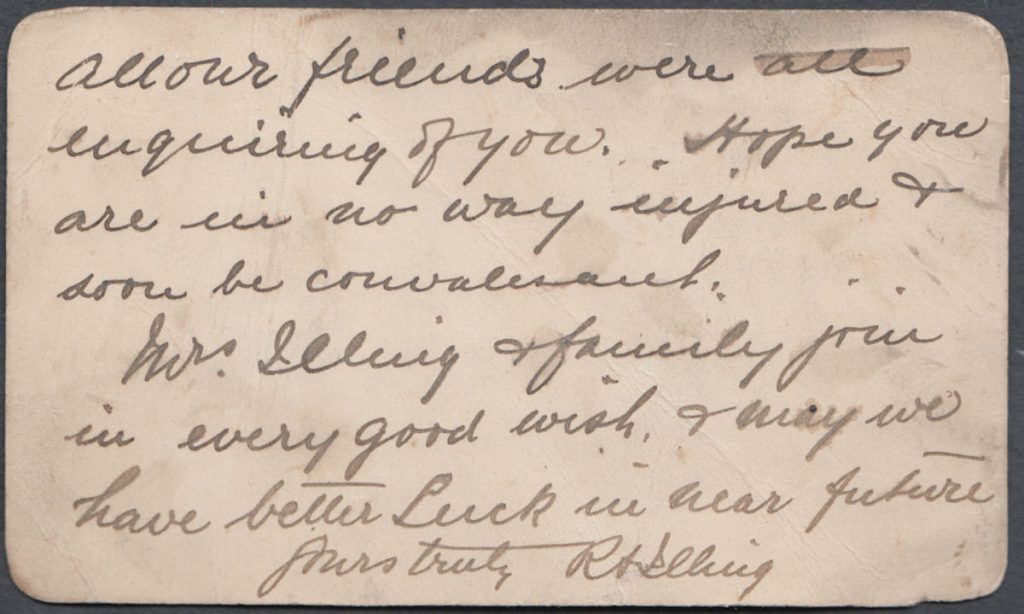 all our friends were all
enquiring of you. Hope you
are in no way injured &
soon be convalesant.
Mrs. Illing & family join
in every good wish. & may we
have better Luck in near future
yours truly R H Illing